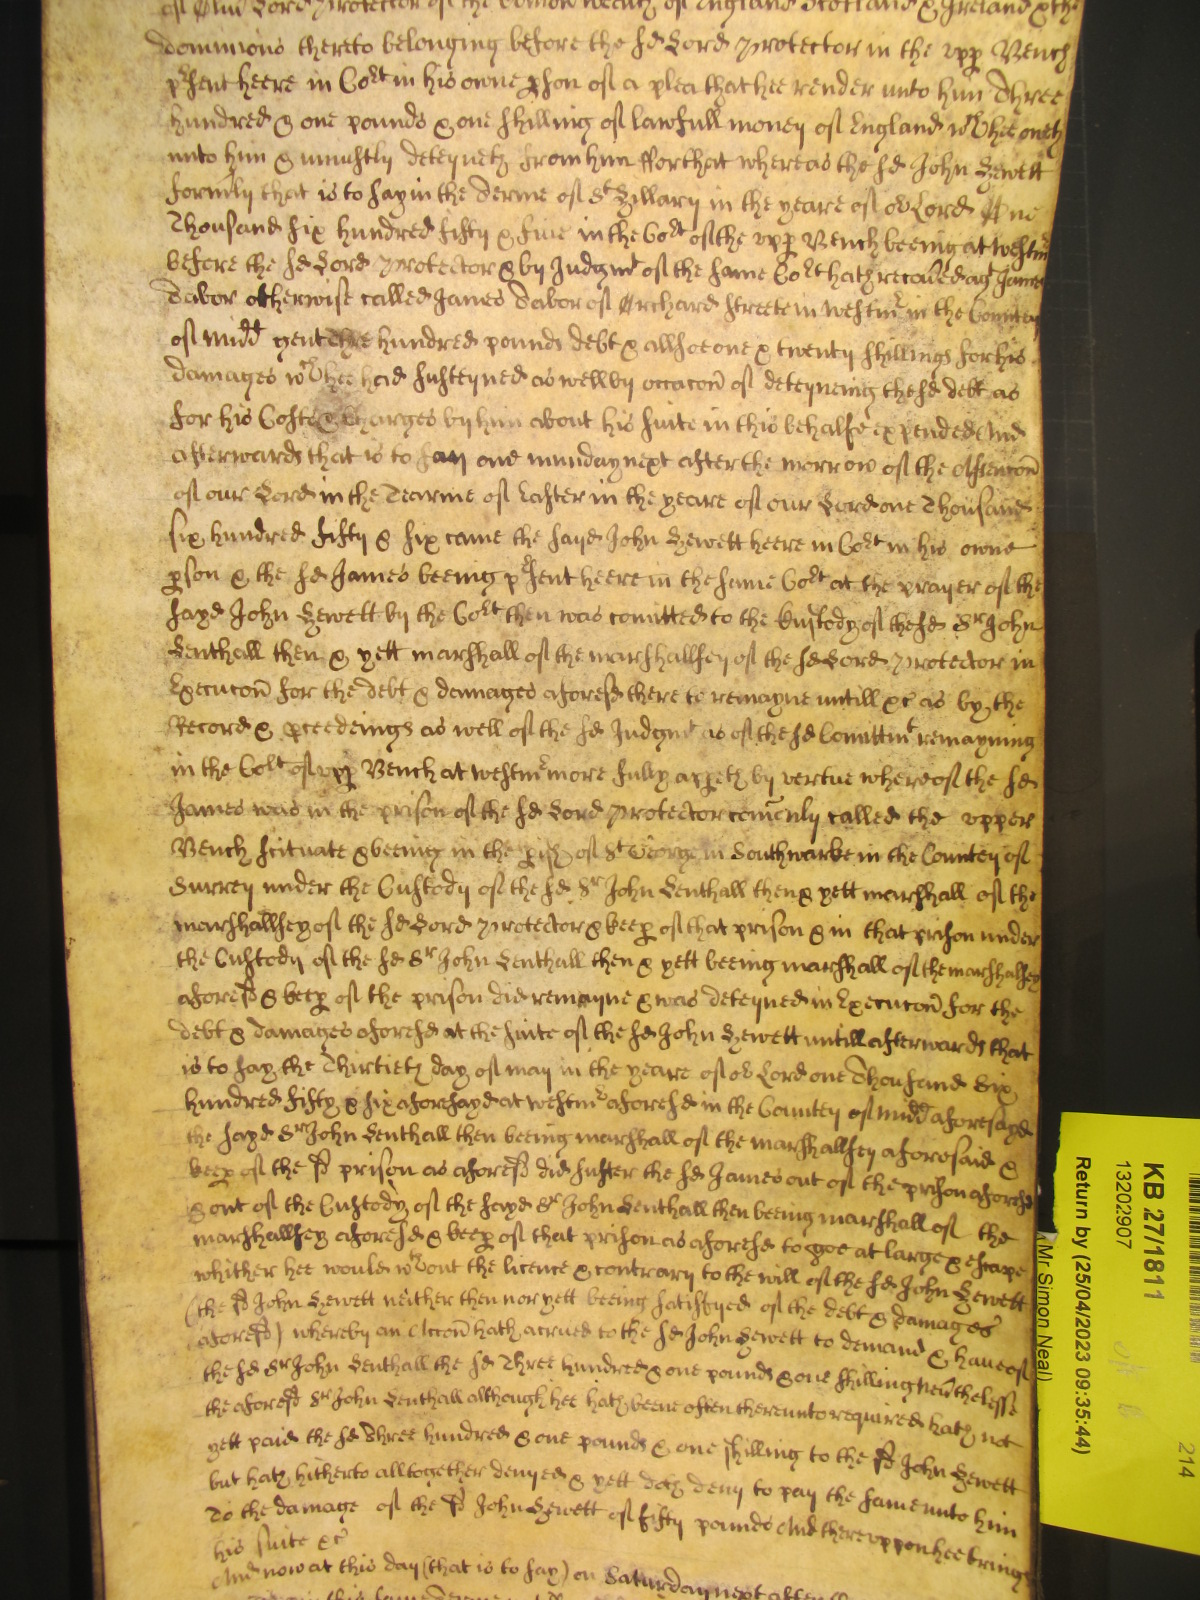 of Lord Protector of the Comon wealth of England Scotland & Ireland & the
dominions thereto belonging before the sd Lord Protector in the upp Bench
psent heere in Cort in his owne pson of a plea that hee render unto him Three
hundred & one pounds & one shilling of lawfull money of England wch hee oweth
unto him & uniustly deteyneth from him ffor that whereas the sd John Hewett
formly that is to say in the Terme of St Hillary in the yeare of or Lord One
Thousand six hundred fifty & five in the Cort of the upp Bench beeing at Westmr
before the sd Lord Protector & by Judgmt of the same Cort hath recoued agt James
Tabor otherwise called James Tabor of Orchard streete in Westmr in the County
of Midd gent three hundred pounds debt & allsoe one & twenty shillings for his
damages wch hee had susteyned as well by occacon of deteyneing the sd debt as
for his Costs & Charges by him about his suite in this behalfe expended And
afterwards that is to say one munday next after the morrow of the Ascencon
of our Lord in the Tearme of Easter in the yeare of our Lord one Thousand
six hundred fifty & six came the sayd John Hewett heere in Cort in his owne
pson & the sd James beeing psent heere in the same Cort at the prayer of the
sayd John Hewett by the Cort then was comitted to the Custody of the sd Sr John
Lenthall then & yett marshall of the marshallsey of the sd Lord Protector in
Execucon for the debt & damages aforesd there to remayne untill &c as by the
Record & pceedeings as well of the sd Judgmt as of the sd Comittmt remayning
in the Cort of upp Bench at Westmr more fully appeth by vertue whereof the sd
James was in the prison of the sd Lord Protector comonly called the upper
Bench scituate & beeing in the pish of St George in Southwarke in the County of
Surrey under the Custody of the sd Sr John Lenthall then & yett marshall of the
marshallsey of the sd Lord Protector & keep of that prison & in that prison under
the Custody of the sd Sr John Lenthall then & yett beeing marshall of the marshalsey
aforesd & keep of the prison did remayne & was deteyned in Execucon for the
debt & damages aforesd at the suite of the sd John Hewett untill afterwards that
is to say the Thirtieth day of may in the yeare of or Lord one Thousand Six
hundred fifty & six aforesayd at Westmr aforesd in the County of Midd aforesayd
the sayd Sr John Lenthall then beeing marshall of the marshallsey aforesaid &
keep of the sd prison as aforesd did suffer the sd James out of the prison aforesd
& out of the Custody of the sayd Sr John Lenthall then beeing marshall of the
marshallsey aforesd & keep of that prison as aforesd to goe at large & escape
whither hee would wthout the licence & contrary to the will of the sd John Hewett
(the sd John Hewett neither then nor yett beeing satisfyed of the debt & damages
aforesd) whereby an Accon hath acrued to the sd John Hewett to demand & have of
the sd Sr John Lenthall the sd Three hundred & one pounds & one shilling neuthelesse
the aforesd Sr John Lenthall although hee hath beene often thereunto required hath not
yett paid the sd Three hundred & one pounds & one shilling to the sd John Hewett
but hath hitherto alltogether denyed & yett doth deny to pay the same unto him
To the damage of the sd John Hewett of fifty pounds And thereuppon hee brings
his suite &c
And now at this day (that is to say) on Saturday next after
KB 27/1811
13202907
Return by (25/04/2023 09:35:44)
Mr Simon Neal)
214